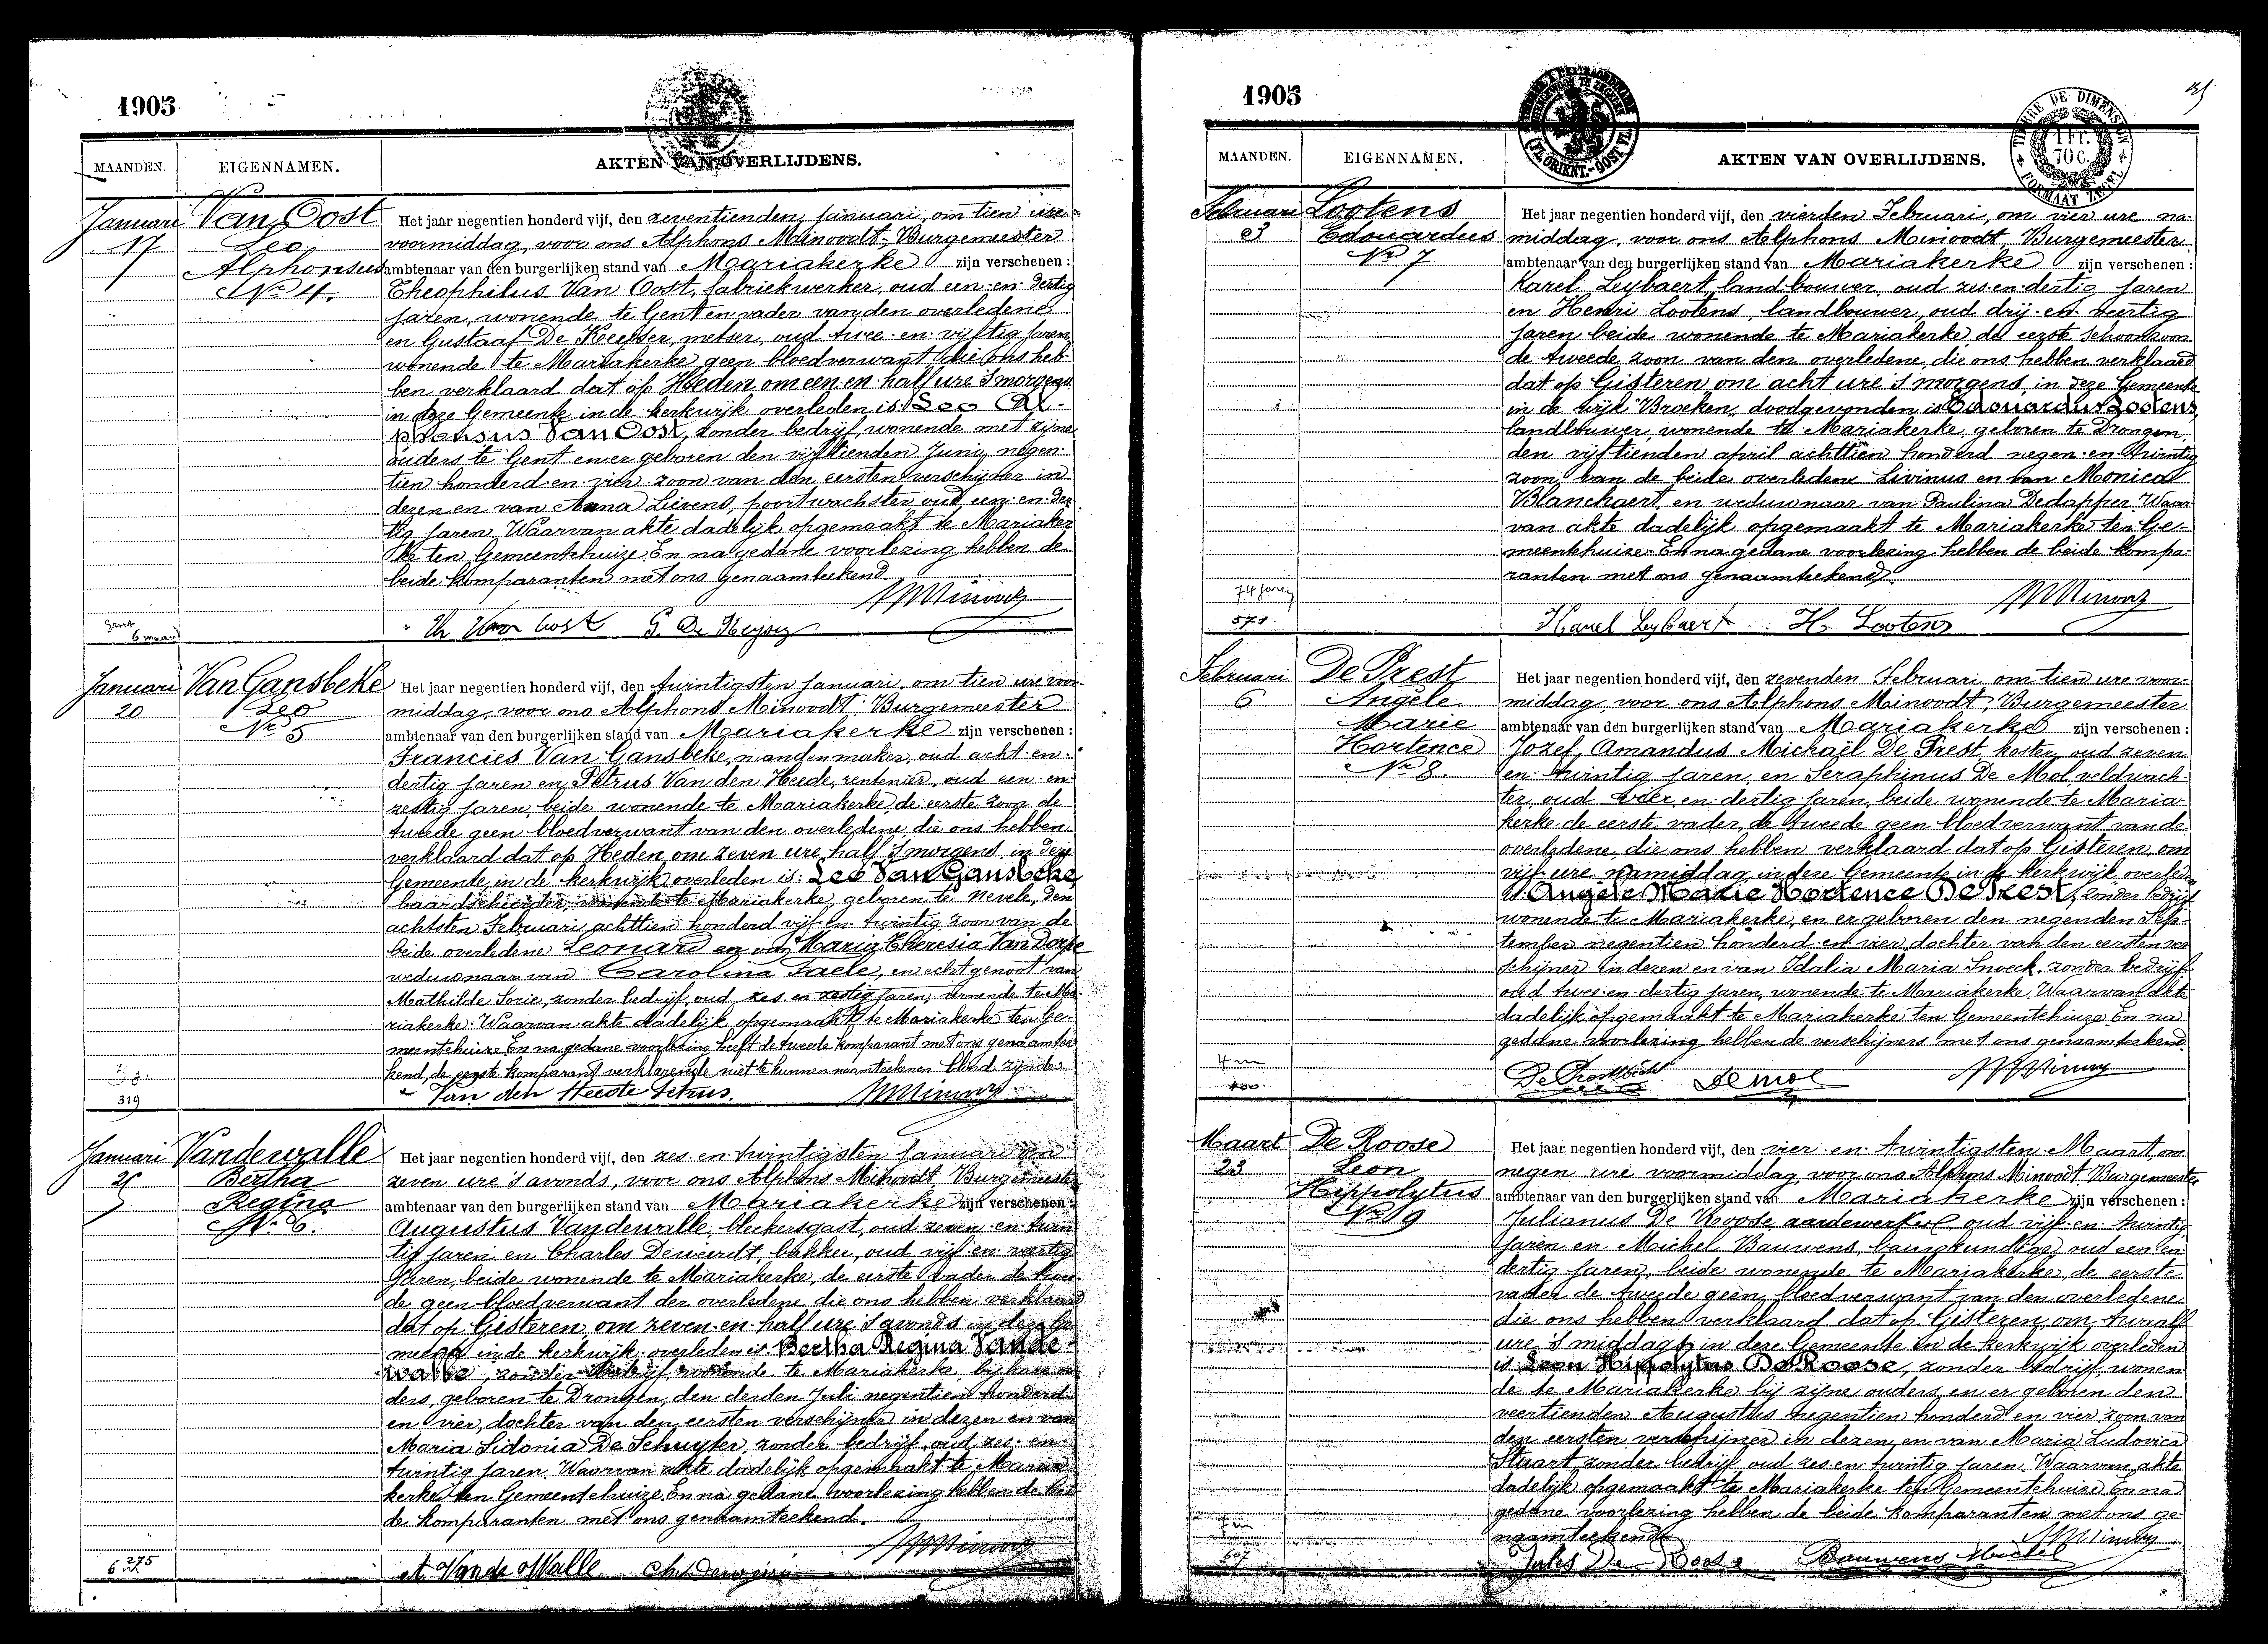 1905
MAANDEN. EIGENNAMEN. AKTEN VAN OVERLIJDENS.
Januari
17
Van Oost
Leo
Alphonsus
No 4.
Het jaar negentien honderd vijf, den zeventienden Januari, om tien ure
voormiddag, voor ons Alphons Minoodt, Burgemeester
ambtenaar van den burgerlijken stand van Mariakerke zijn verschenen :
Theophilus Van Oost, fabriekwerker, oud een-en-dertig
jaren, wonende te Gent en vader van den overledene
en Gustaaf De Keyser, metser, oud twee-en-vijftig jaren
wonende te Mariakerke geen bloedverwant, die ons heb-
ben verklaard dat op Heden om een en half ure 's morgens
in deze Gemeente in de kerkwijk overleden is Leo Al-
phonsus Van Oost, zonder bedrijf, wonende met zijne
ouders te Gent en er geboren den vijftienden Juni, negen-
tien honderd en vier zoon van den eersten verschijner in
dezen en van Anna Lievens, poortwachster oud een-en-der-
tig jaren. Waarvan akte dadelijk opgemaakt te Mariaker-
ke ten Gemeentehuize. En na gedane voorlezing hebben de
beide komparanten met ons genaamteekend.
Gent
6 maand
Th Van Oost G. De Keyser
Januari
20
Van Gansbeke
Leo
No 5
Het jaar negentien honderd vijf, den twintigsten Januari, om tien ure voor-
middag, voor ons Alphons Minoodt, Burgemeester
ambtenaar van den burgerlijken stand van Mariakerke zijn verschenen :
Francies Van Gansbeke, mandenmaker, oud acht-en-
dertig jaren en Petrus Van den Heede, rentenier, oud een-en-
zestig jaren, beide wonende te Mariakerke, de eerste zoon de
tweede geen bloedverwant van den overledene, die ons hebben
verklaard dat op Heden om zeven ure half 's morgens, in deze
Gemeente in de kerkwijk overleden is: Leo Van Gansbeke
baardscheerder, wonende te Mariakerke, geboren te Nevele, den
achtsten Februari achttien honderd vijf en twintig zoon van de
beide overledene Leonard en van Maria Theresia Van Dorpe
weduwnaar van Carolina Faele, en echtgenoot van
Mathilde Sorie, zonder bedrijf, oud zes en zestig jaren, wonende te Ma-
riakerke. Waarvan akte dadelijk opgemaakt te Mariakerke ten Ge-
meentehuize En na gedane voorlezing heeft de tweede komparant met ons genaamtee-
kend, de eerste komparant verklarende niet te kunnen naamteekenen blind zijnde
319
Van den Heede Petrus.
Januari
25
Vandewalle
Bertha
Regina
No 6.
Het jaar negentien honderd vijf, den zes-en-twintigsten Januari om
zeven ure 's avonds, voor ons Alphons Minoodt, Burgemeester
ambtenaar van den burgerlijken stand van Mariakerke zijn verschenen :
Augustus Vandewalle, bleekersgast, oud zeven-en-twin-
tig jaren en Charles Deweirdt, bakker, oud vijf-en-veertig
jaren, beide wonende te Mariakerke, de eerste vader de twee-
de geen bloedverwant der overledene die ons hebben verklaard
dat op Gisteren om zeven-en-half ure 's avonds in deze Ge-
meente in de kerkwijk overleden is: Bertha Regina Vande-
walle, zonder bedrijf, wonende te Mariakerke, bij hare ou-
ders, geboren te Drongen, den derden Juli negentien honderd
en vier, dochter van den eersten verschijner in dezen en van
Maria Sidonia De Schuyter, zonder bedrijf, oud zes-en-
twintig jaren. Waarvan akte dadelijk opgemaakt te Maria-
kerke ten Gemeentehuize. En na gedane voorlezing hebben de bei-
de komparanten met ons genaamteekend.
275
6
A. Van de Walle
1905
TIMBRE DE DIMENSION
1 FR.
70 C.
FORMAAT ZEGEL
MAANDEN. EIGENNAMEN. AKTEN VAN OVERLIJDENS.
Februari
3
Lootens
Edouardus
No 7
Het jaar negentien honderd vijf, den vierden Februari, om vier ure na-
middag, voor ons Alphons Minoodt Burgemeester
ambtenaar van den burgerlijken stand van Mariakerke zijn verschenen :
Karel Leybaert, landbouwer, oud zes-en-dertig jaren
en Henri Lootens, landbouwer, oud drij-en-veertig
jaren beide wonende te Mariakerke de eerste schoonzoon
de tweede zoon van den overledene, die ons hebben verklaard
dat op Gisteren om acht ure 's morgens in deze Gemeente
in de wijk Broeken, doodgevonden is Edouardus Lootens,
landbouwer, wonende te Mariakerke, geboren te Drongen,
den vijftienden april achttien honderd negen-en-twintig
zoon van de beide overledene Livinus en van Monica
Blanckaert, en weduwnaar van Paulina Dedapper. Waar-
van akte dadelijk opgemaakt te Mariakerke ten Ge-
meentehuize. En na gedane voorlezing hebben de beide kompa-
ranten met ons genaamteekend.
74 jaren
571
Karel Leybaert H. Lootens
Februari
6
De Prest
Angèle
Marie
Hortence
No 8.
Het jaar negentien honderd vijf, den zevenden Februari om tien ure voor-
middag, voor ons Alphons Minoodt, Burgemeester
ambtenaar van den burgerlijken stand van Mariakerke zijn verschenen :
Jozef, Amandus Michaël De Prest, koster, oud zeven
en-twintig jaren, en Seraphinus De Mol, veldwach-
ter, oud vier-en-dertig jaren, beide wonende te Maria-
kerke de eerste vader, de tweede geen bloedverwant van de
overledene, die ons hebben verklaard dat op Gisteren om
vijf ure namiddag, in deze Gemeente in de kerkwijk overleden
is Angèle Marie Hortence De Prest, zonder bedrijf
wonende te Mariakerke, en er geboren den negenden Sep-
tember negentien honderd en vier, dochter van den eersten ver-
schijner in dezen en van Idalia Maria Snoeck, zonder bedrijf
oud twee-en-dertig jaren, wonende te Mariakerke. Waarvan akte
dadelijk opgemaakt te Mariakerke ten Gemeentehuize. En na
gedane voorlezing hebben de verschijners met ons genaamteekend.
4 m
400
De Prest Demol
Maart
23
De Roose
Leon
Hippolytus
No 9
Het jaar negentien honderd vijf, den vier-en-twintigsten Maart om
negen ure voormiddag, voor ons Alphons Minoodt, Burgemeester
ambtenaar van den burgerlijken stand van Mariakerke zijn verschenen :
Julianus De Roose aardewerker, oud vijf-en-twintig
jaren en Michel Bauwens, bouwkundige, oud een-en-
dertig jaren, beide wonende te Mariakerke, de eerste
vader de tweede geen bloedverwant van den overledene
die ons hebben verklaard dat op Gisteren om twaalf
ure 's middags in deze Gemeente in de kerkwijk overleden
is Leon Hippolytus De Roose, zonder bedrijf, wonen-
de te Mariakerke bij zijne ouders en er geboren den
veertienden Augustus negentien honderd en vier, zoon van
den eersten verschijner in dezen en van Maria Ludovica
Stuart, zonder bedrijf, oud zes en twintig jaren. Waarvan akte
dadelijk opgemaakt te Mariakerke ten Gemeentehuize En na
gedane voorlezing hebben de beide komparanten met ons ge-
naamteekend
7 m
607
Jules De Roose Bauwens Michel